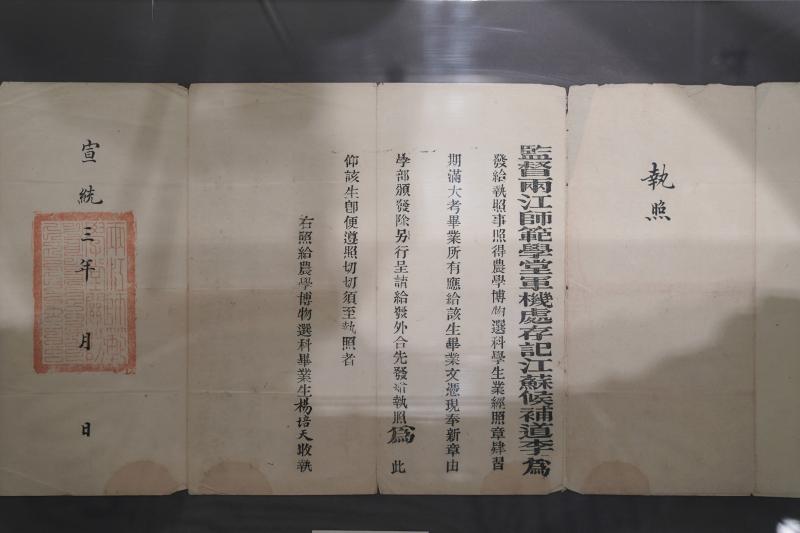 執照
監督兩江師範學堂軍機處存記江蘇候補道李為
發給執照事照得農學博物選科學生業經照章肄習
期滿大考畢業所有應給該生畢業文憑現奉新章由
學部頒發除另行呈請給發外合先發給執照為此
仰該生卽便遵照切切須至執照者
右照給農學博物選科畢業生楊培天收執
宣統三年 月 日